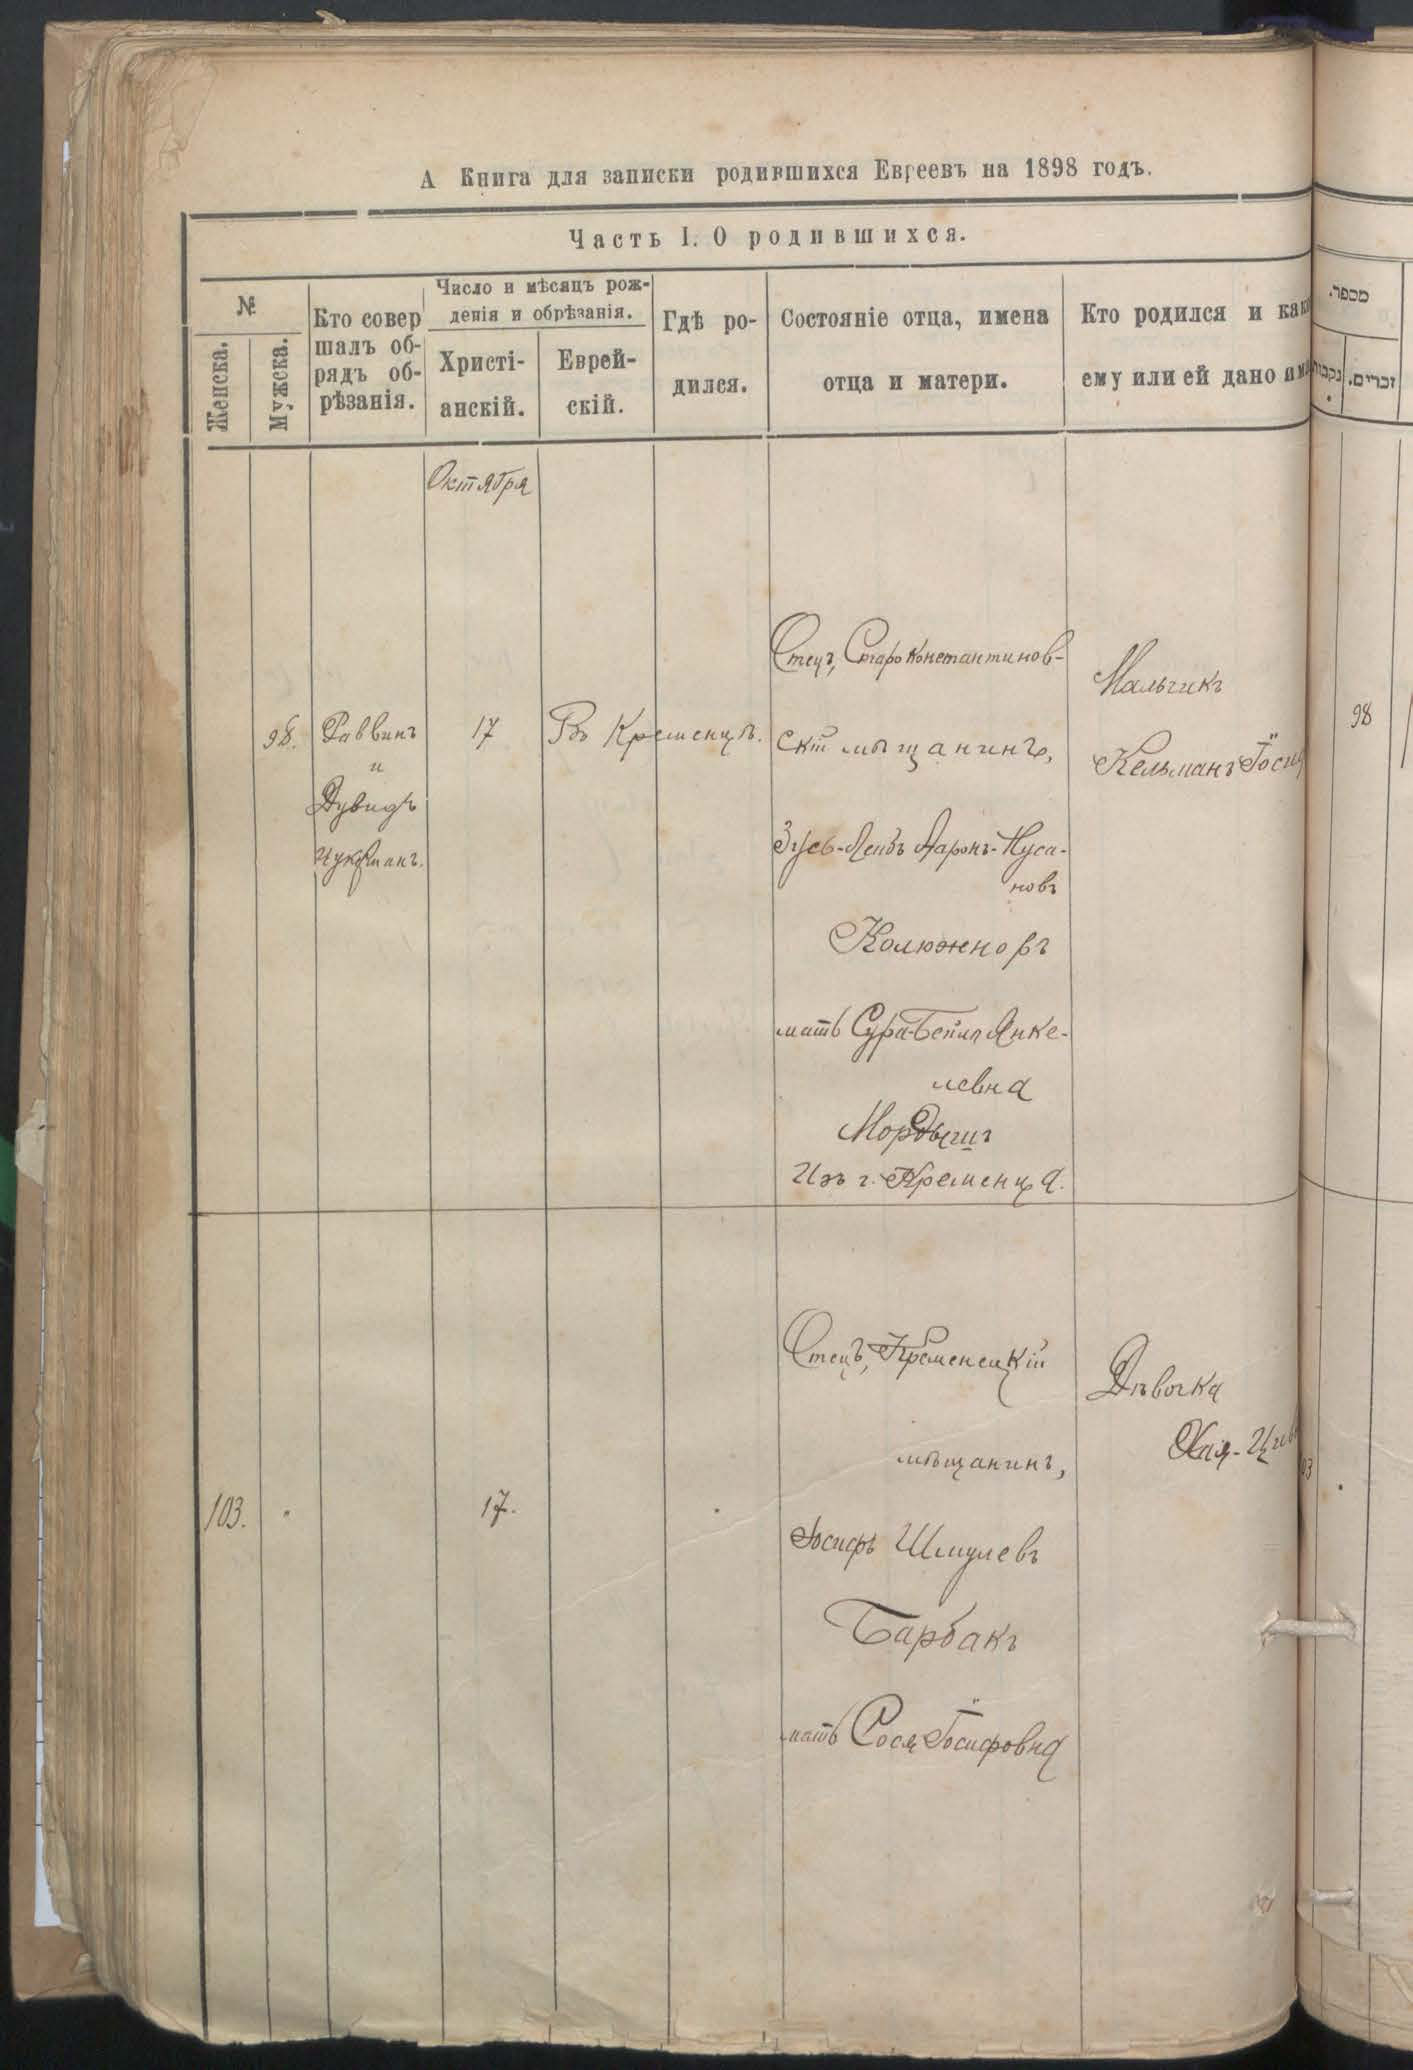 А Книга для записки родившихся Евреевъ на 1898 годъ.
Часть I. О родившихся.
№
Женска.
Мужска.
Кто совер
шалъ об-
рядъ об-
рѣзанія.
Число и мѣсяцъ рож-
денія и обрѣзанія.
Христі-
анскій.
Еврей-
скій.
Гдѣ ро-
дился.
Состояніе отца, имена
отца и матери.
Кто родился и како
ему или ей дано им
מספר.
נקבות
זכרים.
Октября
98.
Раввинъ
и
Дувидъ
Цукрманъ.
17
Въ Кременцѣ.
Отецъ, Староконстантинов-
скій мѣщанинъ,
Зусь-Лейбъ Ааронъ-Нуса-
новъ
Колюжновъ
мать Сура-Бейла Янке-
левна
Изъ г. Кременца.
Мальчикъ
Кельманъ Іосиф
98
103.
17.
Отецъ, Кременецкій
мѣщанинъ,
Іосифъ Шмулевъ
Барбакъ
мать Сося Іосифовна
Дѣвочка
Хая-Цив
03